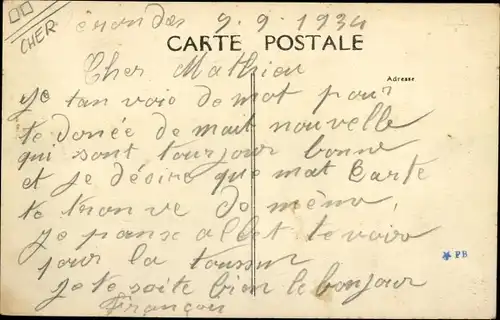 CHER
9.9.1934
CARTE POSTALE
Adresse
Cher Mathieu
Je tan voio de mot pour
te donée de mait nouvelle
qui sont tourjour bonne
et je désire que mat Carte
te tronve de même,
je panse allet te voir
pour la toussin
je te soite bien le bonjour
François
PB